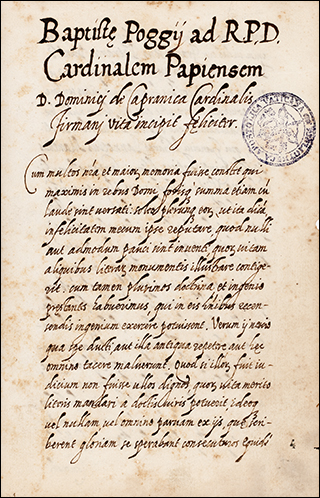 Baptistę Poggij ad R.P.D.
Cardinalem Papiensem
D. Dominici de Capranica Cardinalis
Firmani vita incipit feliciter.
Cum multos nr̃a et maior̨ memoria fuisse constet qui
maximis in rebus Domi forisq̨ summa etiam cũ
laude sint versati: soleo eor̨ ut ita dicã
infelicitatem mecum ipse reputare quod nulli
aut admodum pauci sint inventi quor̨ vitam
aliquibus literar̨ monumentis illustrare contige-
rit. cum tamen plurimos doctrina et ingenio
prestantes habuerimus, qui in eis
ingenium exercere potuissent. Verum ij
aut illa antiqua repetere aut hec
omnino tacere maluerunt. Quod si illor̨ fuit iu-
dicium non fuisse ullos dignos quor̨ vita merito
literis mandari a doctis viris potuerit ideoq̨
vel nullam vel omnino parvam ex ijs, que scri-
berent gloriam se sperabant consecuturos